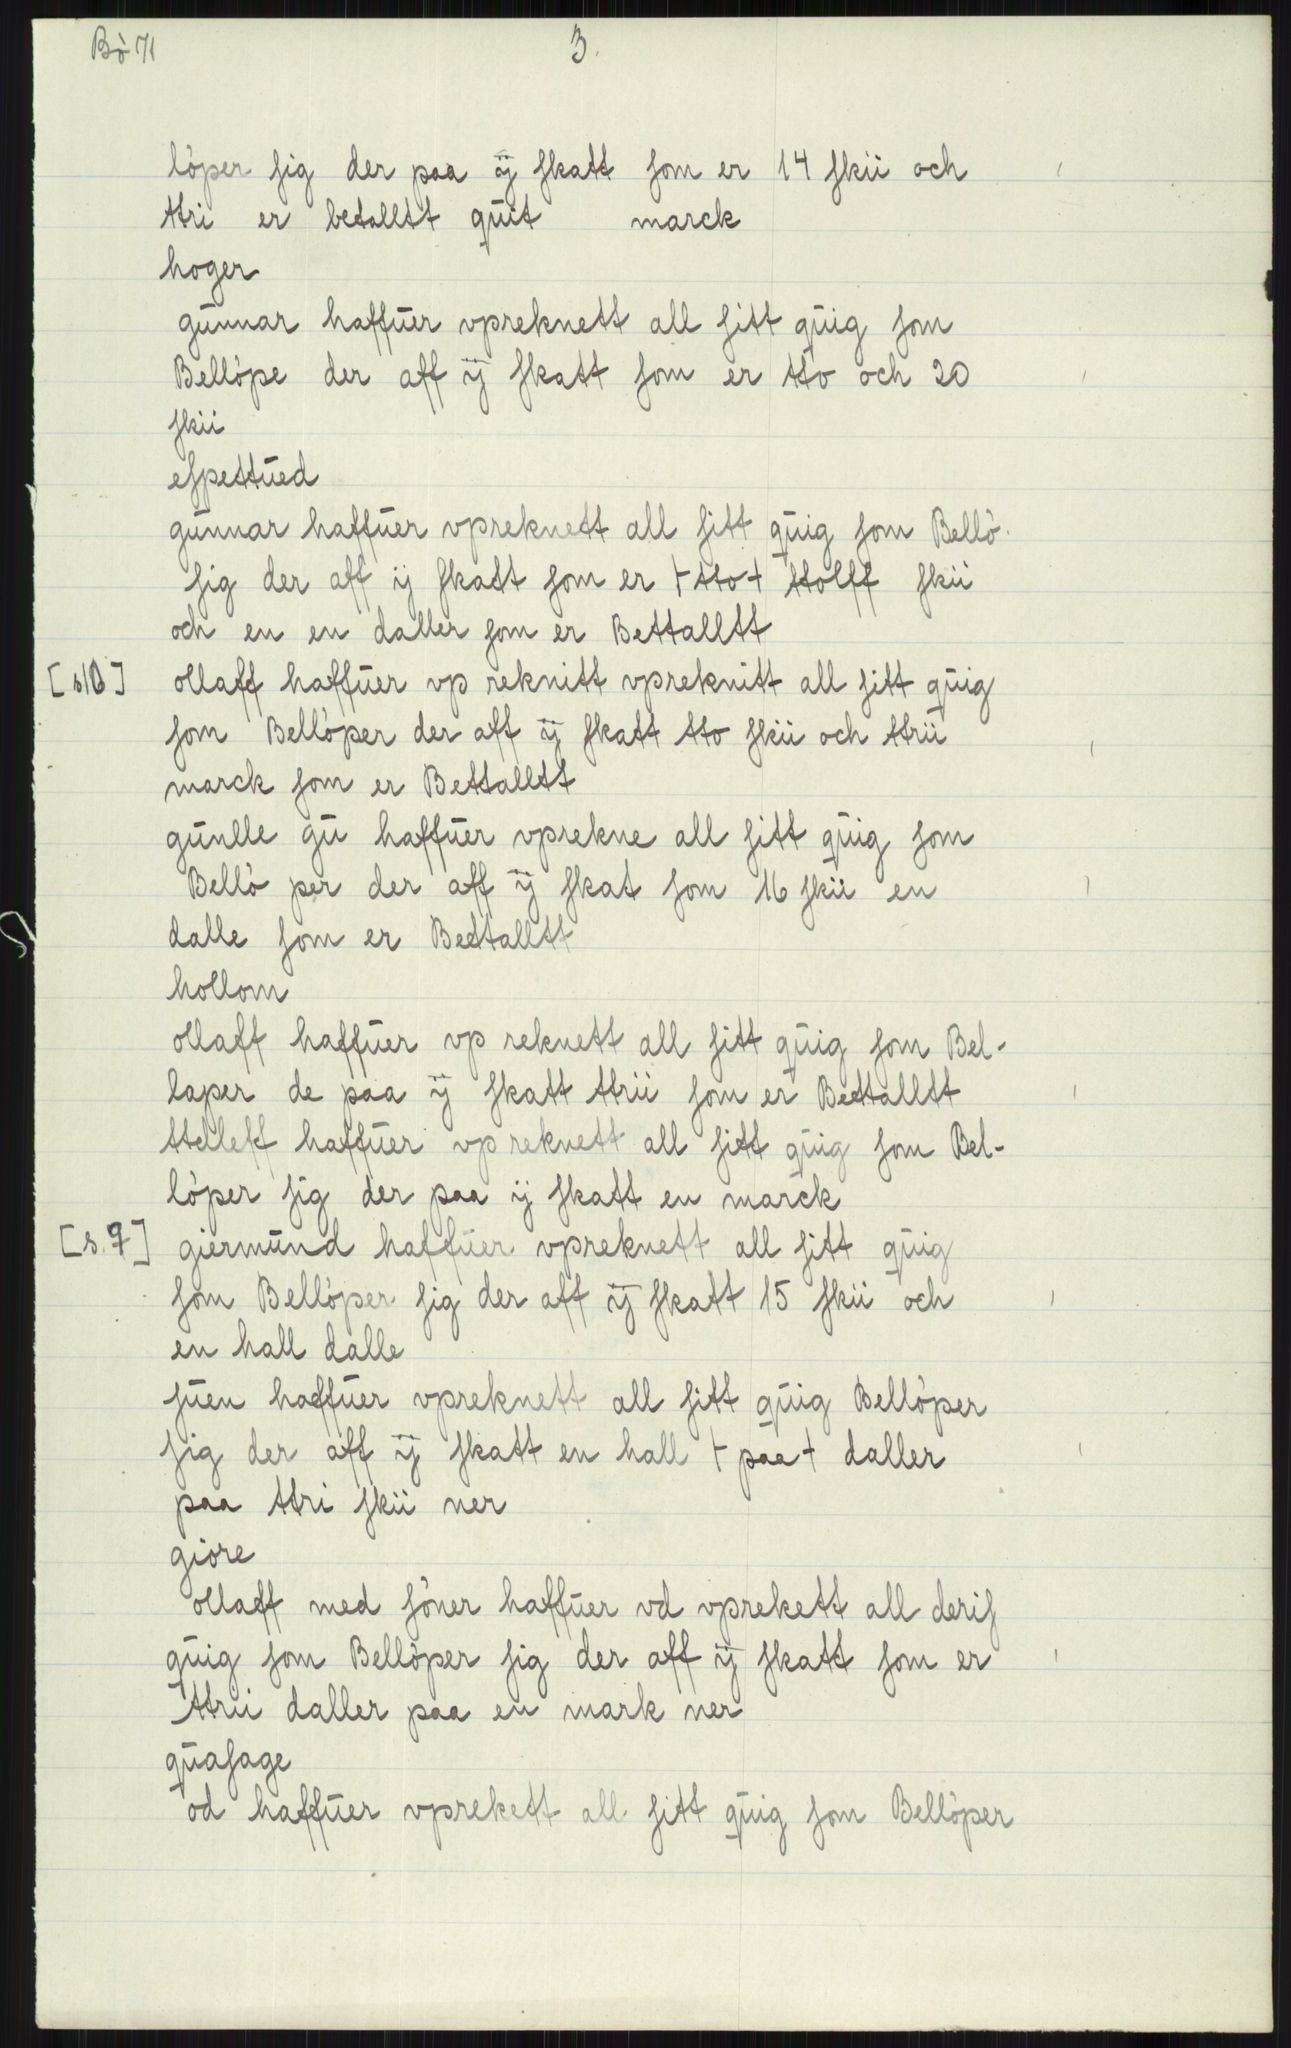 Bò 71
3.
lòper ſig der paa ij ſkatt ſom er 14 ſkii och
ttri er betalltt qūit marck
hoger
gūnnar haffūer vpreknett all ſitt qūig ſom
Bellòpe der aff ij ſkatt ſom er tto och 20
ſkii
eſpettūed
gūnnar haffūer vpreknett all ſitt qūig ſom Bellò-
ſig der aff ij ſkatt ſom er ⊢tto⊣ ttolff ſkii
och en en daller ſom er Bettalltt
ollaff haffūer vp reknitt vpreknitt all ſitt qūig
ſom Bellòper der aff ij ſkatt tto ſkii och ttrii
marck ſom er Bettalltt
gūnlle gū haffūer vprekne all ſitt qūig ſom
Bellò per der aff ij ſkat ſom 16 ſkii en
dalle ſom er Bedtalltt
hollom
ollaff haffūer vp reknett all ſitt qūig ſom Bel-
laper de paa ij ſkatt ttrii ſom er Bedtalltt
ttelleff haffūer vp reknett all ſitt qūig ſom Bel-
lòper ſig der paa ij ſkatt en marck
[s. 9] giermūnd haffūer vpreknett all ſitt qūig
ſom Bellòper ſig der aff ij ſkatt 15 ſkii och
en hall dalle
ſūen haffūer vpreknett all ſitt qūig Bellòper
ſig der aff ij ſkatt en hall ⊢paa⊣ daller
paa ttri ſkii ner
giore
ollaff med ſòner haffūer vd vprekett all deriſ
qūig ſom Bellòper ſig der aff ij ſkatt ſom er
ttrii daller paa en mark ner
qūaſage
od haffūer vprekett all ſitt qūig ſom Bellòper